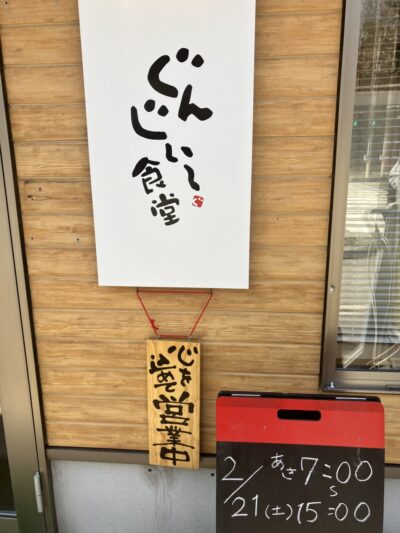 ぐん
じい
食堂
心を
込めて
営業中
2/ あさ7:00
S
21(土)15:00